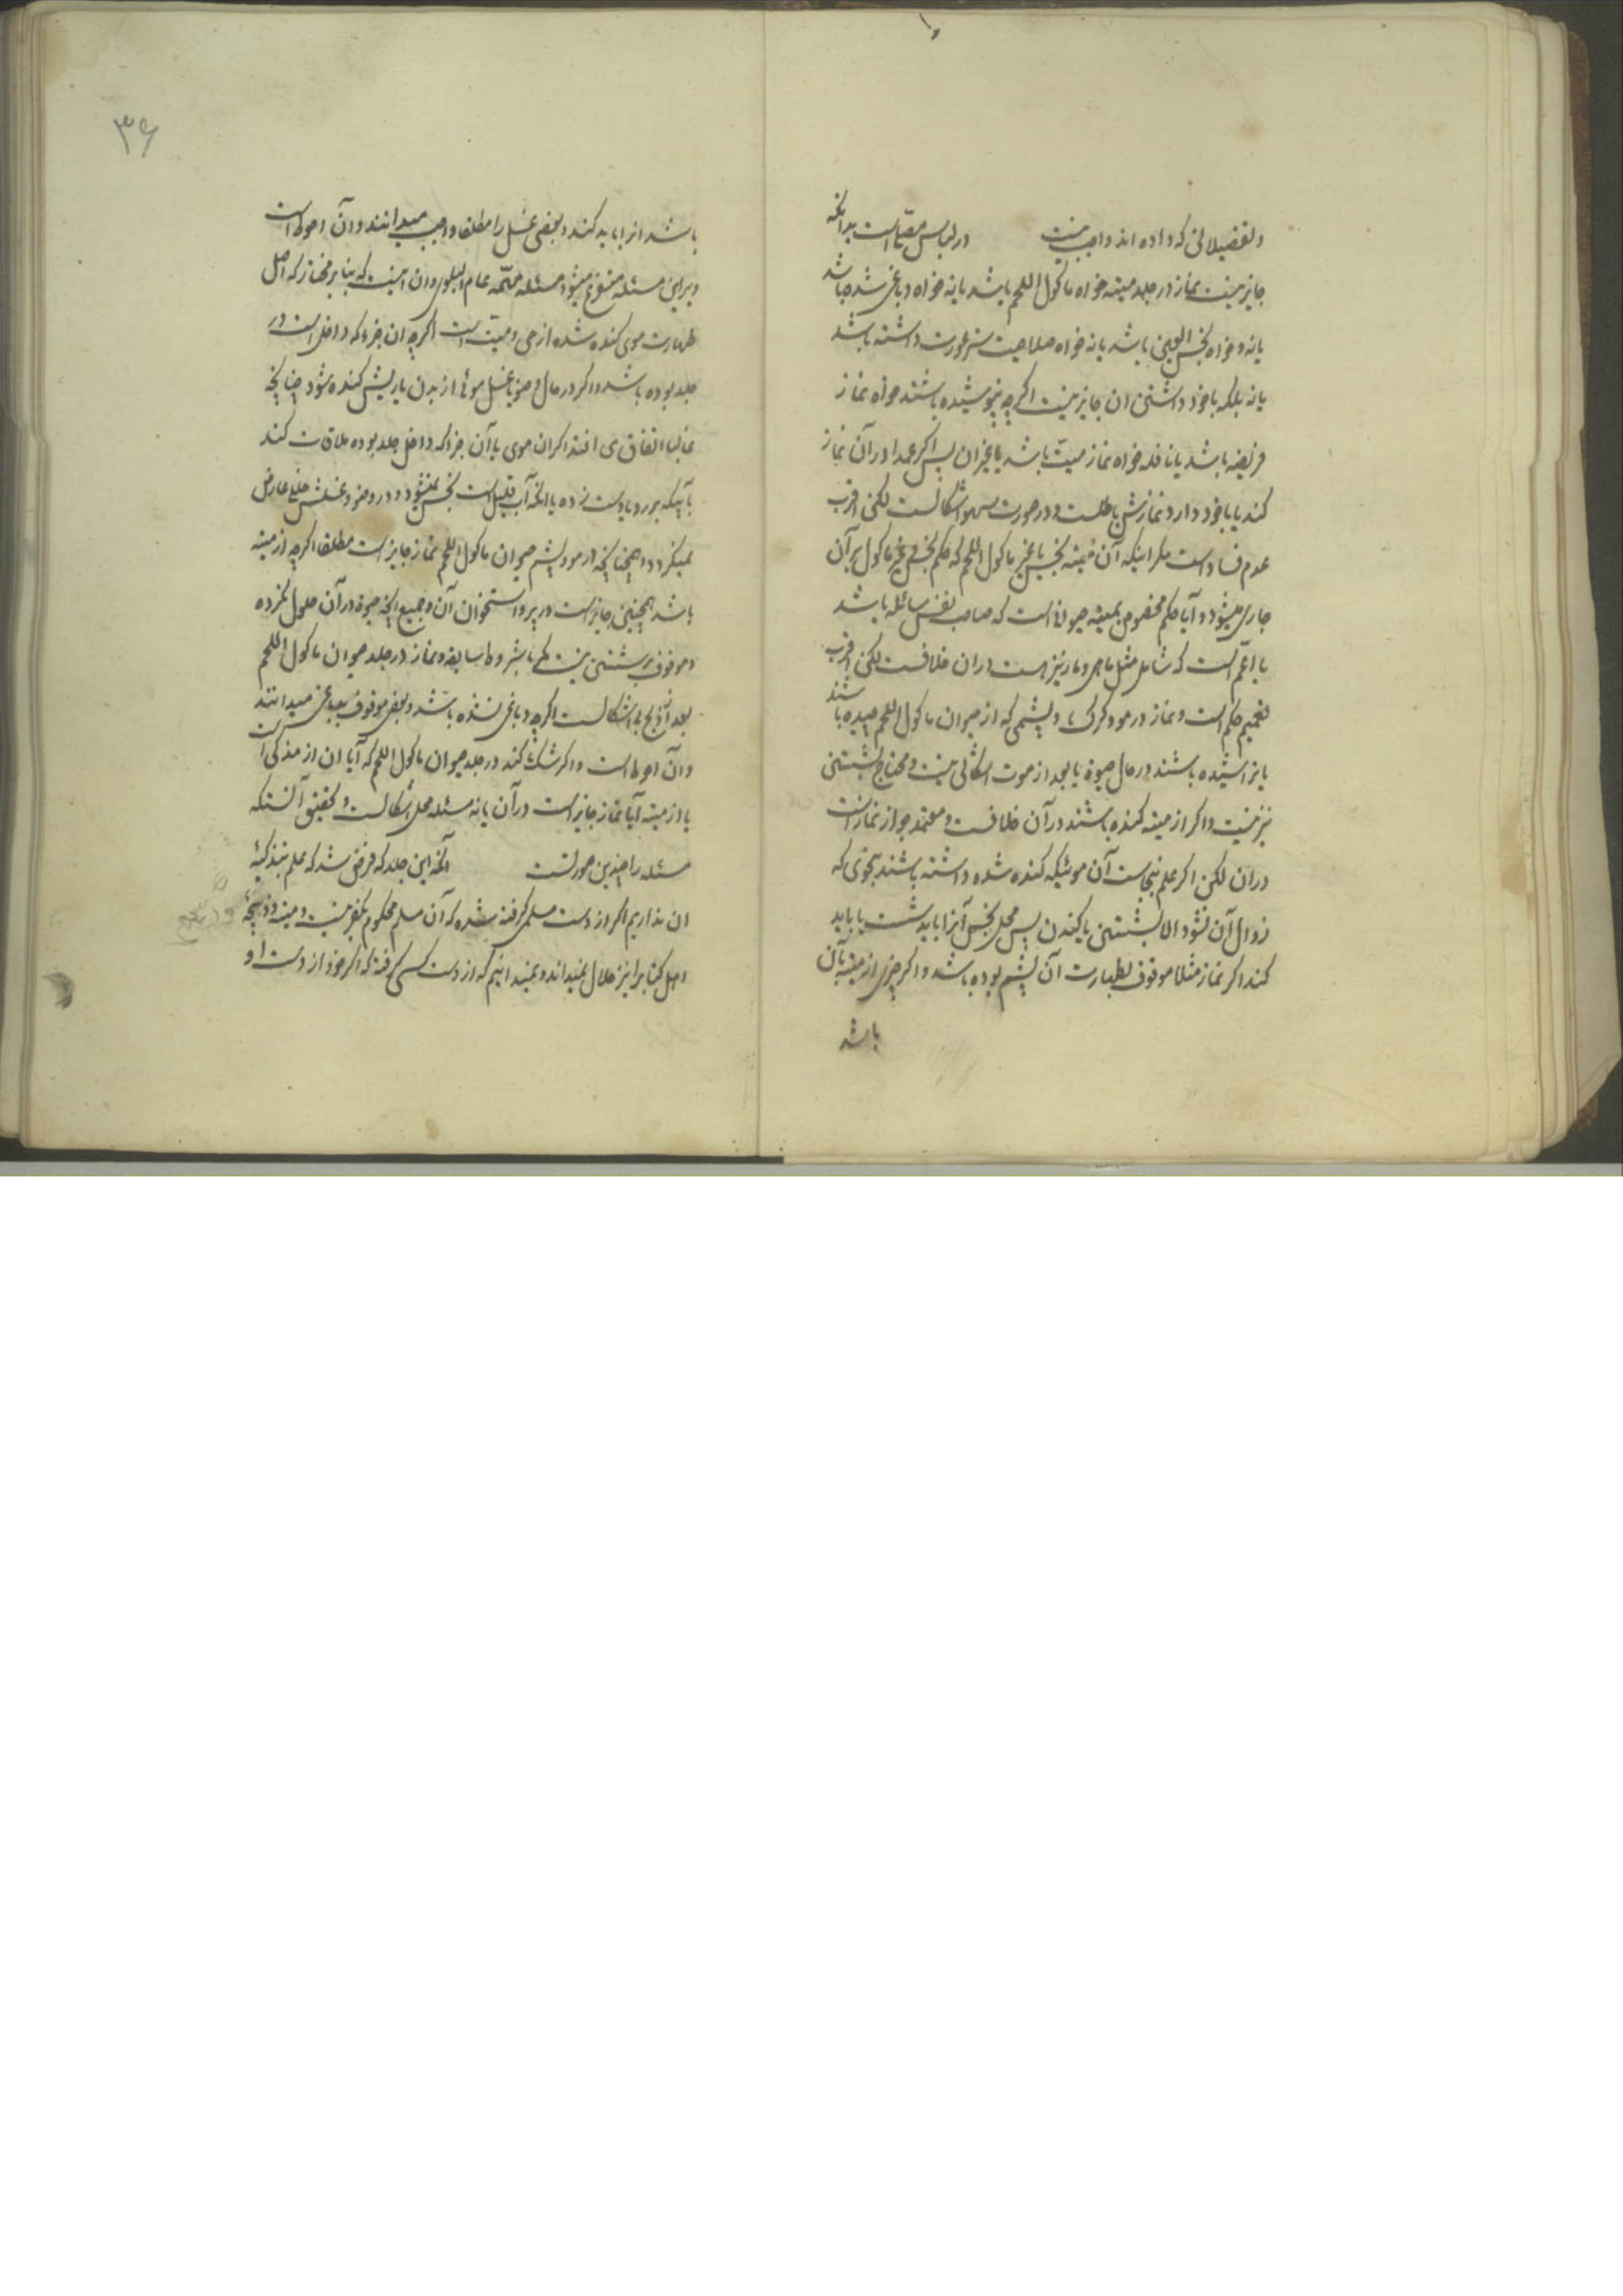 و تفضیلاتی که داده اند واجب نیست در لباس مصلی است بدانکه
جایز نیست نماز در جلد میته خواه ماکول اللحم باشد یا نه خواه دباغی شده باشد
یا نه و خواه نجس العین باشد یا نه خواه صلاحیت ستر عورت داشته باشد
یا نه بلکه با خود داشتن ان جایز نیست اگرچه نپوشیده باشند خواه نماز
فریضه باشد یا نافله خواه نماز میت باشد یا غیر ان پس اگر عمدا در آن نماز
کند یا با خود دارد نمازش باطلست و در صورت سهو اشکالست لکن اقرب
عدم فساد است مگر اینکه آن میته نجس یا غیر ماکول اللحم که حکم نجس و غیر ماکول بر آن
جاری میشود و آیا حکم مخصوص بمیته حیوانی است که صاحب نفس سائله باشد
یا اعم است که شامل مثل ماهی و مار نیز هست در ان خلافست لکن اقرب
تعمیم حکم است و نماز در مو و کرک و پشمی که از حیوان ماکول اللحم چیده باشند
یا تراشیده باشند در حال حیوة یا بعد از موت اشکالی نیست و محتاج بشستن
نیز نیست و اگر از میته کنده باشند در آن خلافست و معتمد جواز نماز است
در ان لکن اگر علم بنجاست آن موئیکه کنده شده داشته باشند بنحوی که
زوال آن نشود الا بشستن یا کندن پس محل نجس آنرا باید شست یا باید
کند اگر نماز مثلا موقوف بطهارت آن پشم بوده باشد و اگر چیزی از میته بآن
باشد
۳۶
باشد انرا باید کند و بعضی غسل را مطلقا واجب میدانند و آن احوط است
و بر این مسئله متفرع میشود مسئله مهمه عام البلوی و ان اینست که بنا بر مختار که اصل
طهارت موی کنده شده از حی و میت است اگرچه ان جزء که داخل است در
جلد بوده باشد و اگر در حال وضو یا غسل موئی از بدن یا ریش کنده شود چنانچه
غالبا اتفاق می افتد اگر ان موی با آن جزء که داخل جلد بوده ملاقات کند
با آبیکه بر رو یا دست زده با انکه آب قلیل است نجس نمیشود و در وضو و غسلش خللی عارض
نمیگردد و همچنانچه در مو و پشم حیوان ماکول اللحم نماز جایز است مطلقا اگرچه از میته
باشد همچنین جایز است در پر و استخوان آن و جمیع انچه حیوة در آن حلول نکرده
و موقوف بر شستن نیست لکن بشروط سابقه و نماز در جلد حیوان ماکول اللحم
بعد از ذبح بی اشکالست اگرچه دباغی نشده باشد و بعضی موقوف بدباغی میدانند
و آن احوط است و اگر شک کند در جلد حیوان ماکول اللحم که آیا ان از مذکی است
یا از میته آیا نماز جایز است در آن یا نه مسئله محل اشکالست و تحقیق آنستکه
مسئله را چندین صورتست انکه این جلد که فرض شد که علم بتذکیۀ
ان نداریم اگر از دست مسلمی گرفته شده که آن مسلم محکوم بکفر نیست و میته و ذبیحۀ
اهل کتاب را نیز حلال نمیداند و نمیدانیم که از دست کسی گرفته که اگر خود از دست او